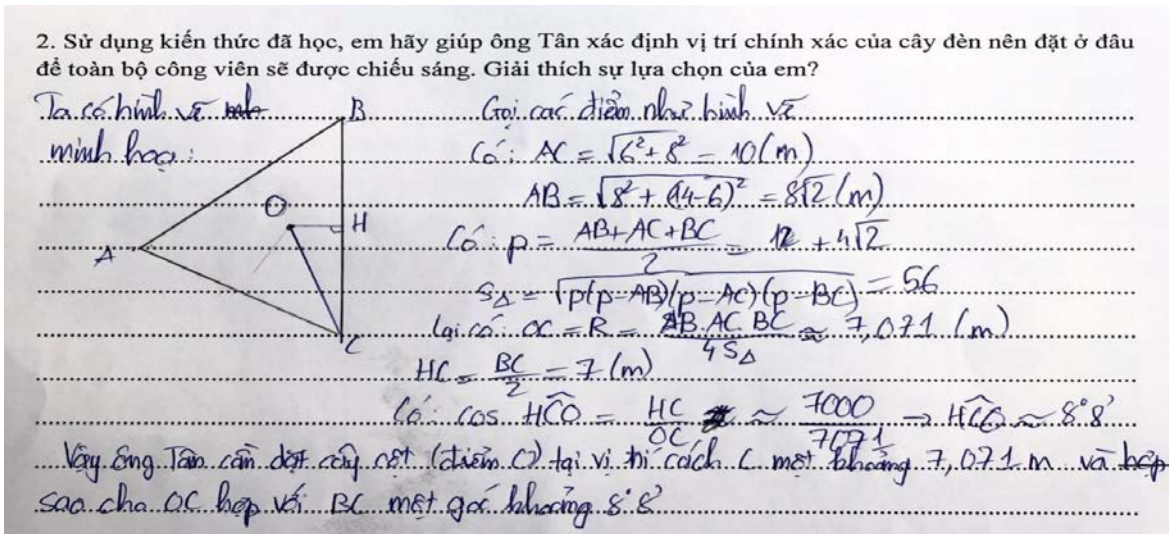 2. Sử dụng kiến thức đã học, em hãy giúp ông Tân xác định vị trí chính xác của cây đèn nên đặt ở đâu
để toàn bộ công viên sẽ được chiếu sáng. Giải thích sự lựa chọn của em?
Ta có hình vẽ
minh hoạ:
B
O
H
A
C
Gọi các điểm như hình vẽ
Có: AC = √(6² + 8²) = 10 (m)
AB = √(8² + (14-6)²) = 8√2 (m)
Có: p = (AB + AC + BC)/2 = 12 + 4√2
S△ = √(p(p-AB)(p-AC)(p-BC)) = 56
Lại có: OC = R = (AB.AC.BC)/(4S△) ≈ 7,071 (m)
HC = BC/2 = 7 (m)
Có: cos HCO = HC/OC ≈ 7000/7071 → HCO ≈ 8°8'
Vậy ông Tân cần đặt cây cột (điểm O) tại vị trí cách C một khoảng 7,071 m và
sao cho OC hợp với BC một góc khoảng 8°8'